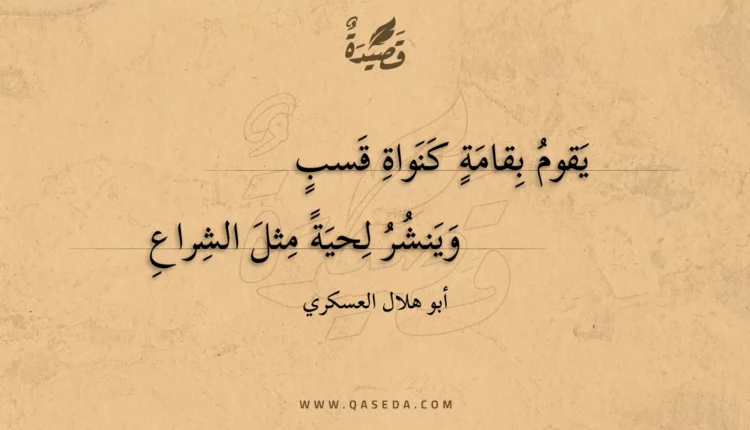 قَصِيْدَةٌ
يَقومُ بِقامَةٍ كَنَواةِ قَسبٍ
وَيَنشُرُ لِحيَةً مِثلَ الشِراعِ
أبو هلال العسكري
WWW.QASEDA.COM